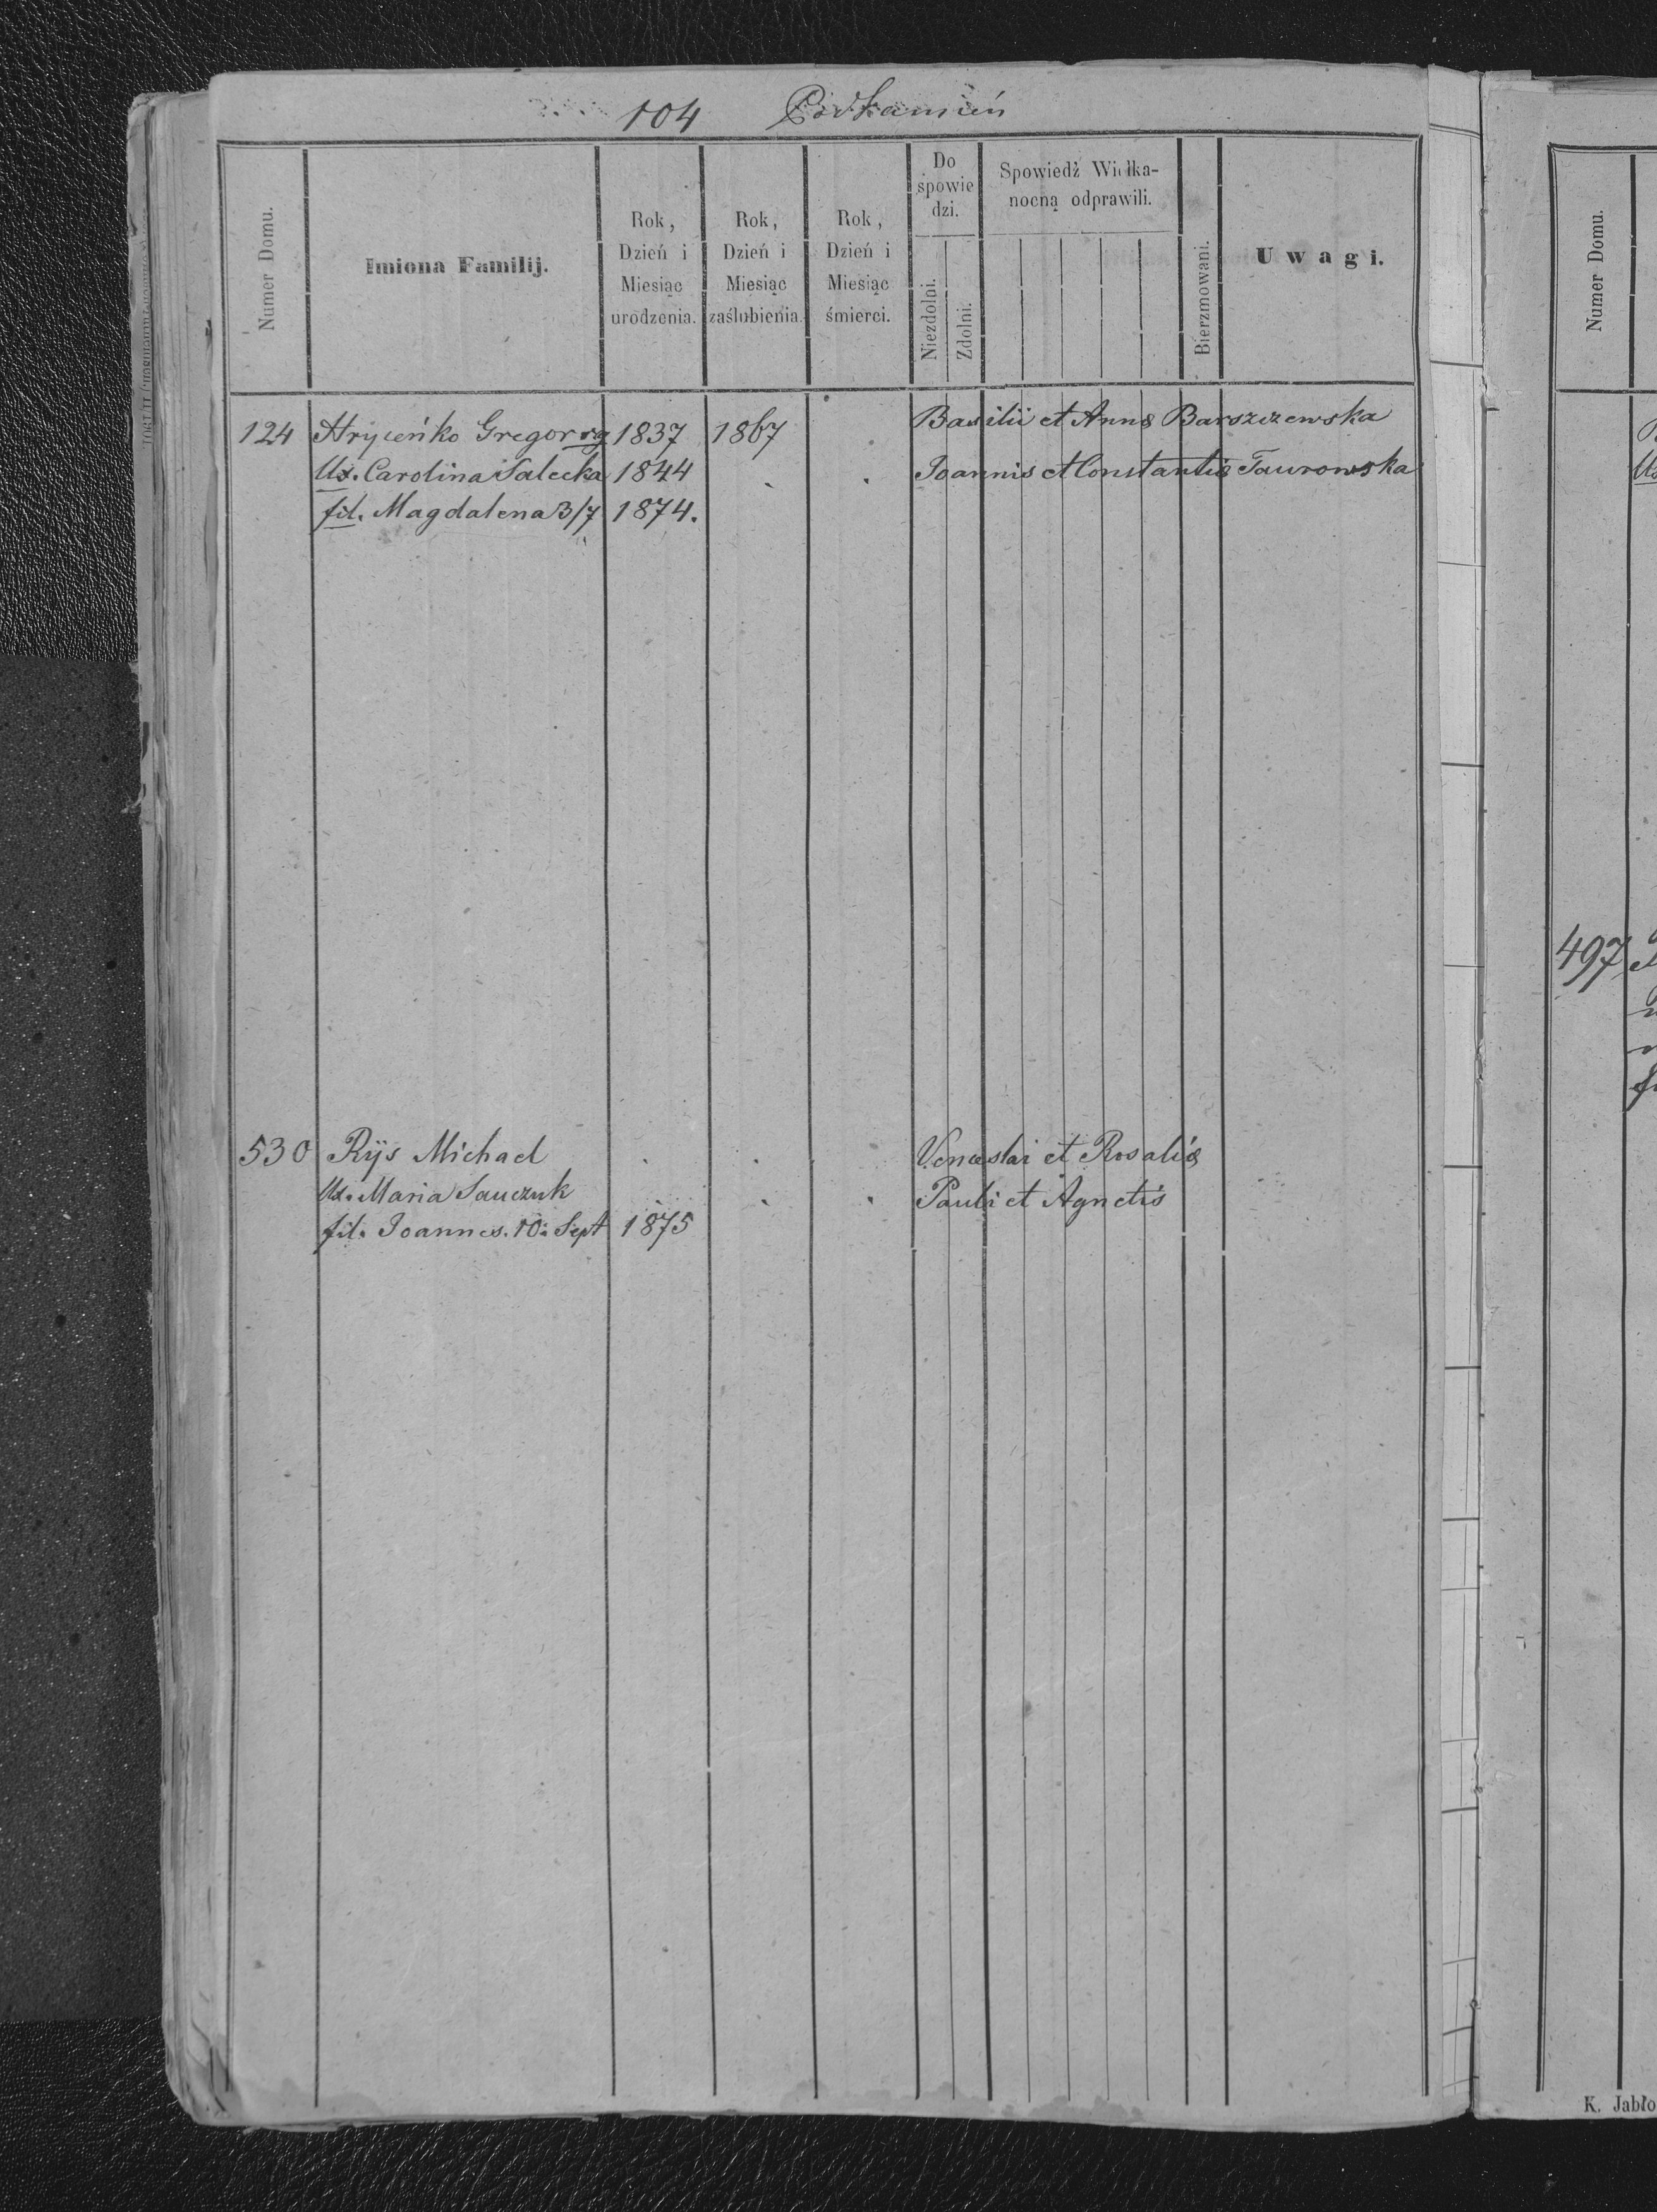 104 Podkamień
Numer Domu.
Imiona Familij.
Rok, Dzień i Miesiąc urodzenia.
Rok, Dzień i Miesiąc zaślubienia.
Rok, Dzień i Miesiąc śmierci.
Do spowie dzi.
Niezdolni.
Zdolni.
Spowiedź Wielka-
nocną odprawili.
Bierzmowani.
Uwagi.
124 Hryceńko Gregor rg 1837 1867 Basilii et Annæ Barszczewska
Ux. Carolina Salecka 1844 Joannis et Constantiæ Taurowska
fil. Magdalena 3/7 1874.
530 Ryś Michael Venceslai et Rosaliæ
Ux. Maria Sauczuk Pauli et Agnetis
fil. Joannes. 10. Sept 1875
Numer Domu.
497
K. Jabło